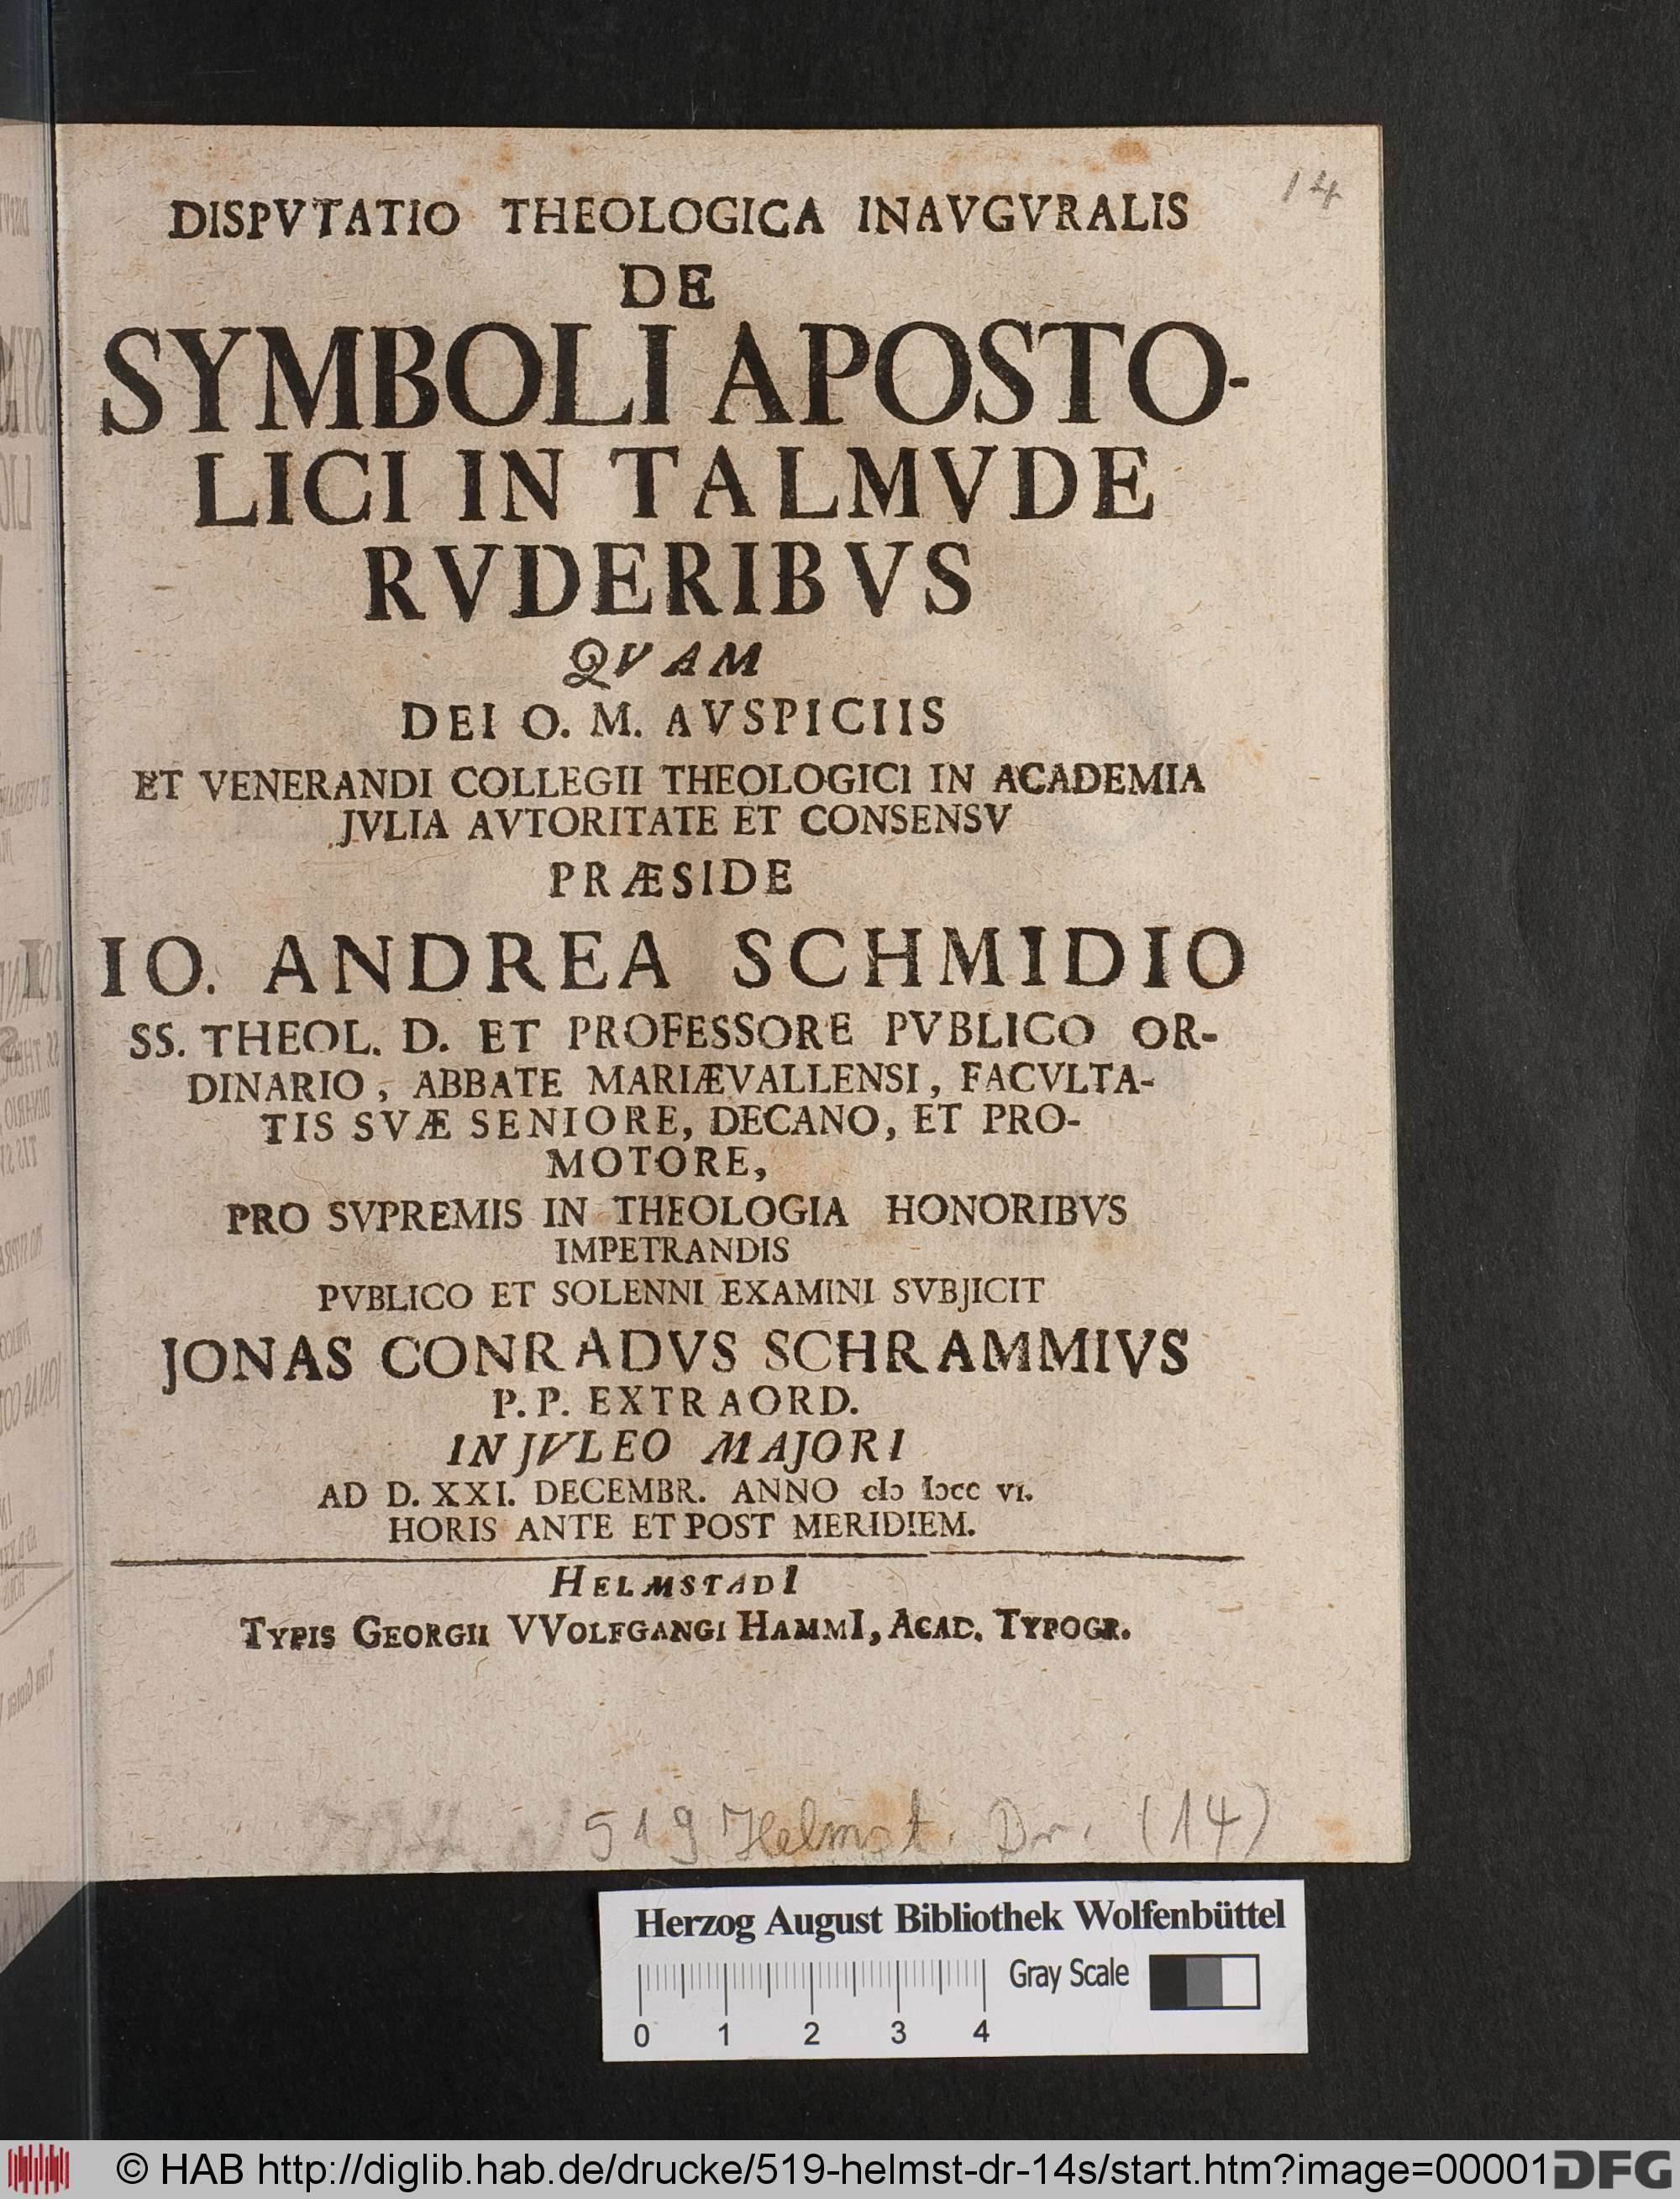 14
DISPVTATIO THEOLOGICA INAVGVRALIS
DE
SYMBOLI APOSTO-
LICI IN TALMVDE
RVDERIBVS
QVAM
DEI O. M. AVSPICIIS
ET VENERANDI COLLEGII THEOLOGICI IN ACADEMIA
JVLIA AVTORITATE ET CONSENSV
PRÆSIDE
IO. ANDREA SCHMIDIO
SS. THEOL. D. ET PROFESSORE PVBLICO OR-
DINARIO, ABBATE MARIÆVALLENSI, FACVLTA-
TIS SVÆ SENIORE, DECANO, ET PRO-
MOTORE,
PRO SVPREMIS IN THEOLOGIA HONORIBVS
IMPETRANDIS
PVBLICO ET SOLENNI EXAMINI SVBJICIT
JONAS CONRADVS SCHRAMMIVS
P. P. EXTRAORD.
IN JVLEO MAJORI
AD D. XXI. DECEMBR. ANNO cIↄ Iↄcc VI.
HORIS ANTE ET POST MERIDIEM.
HELMSTADI
TYPIS GEORGII VVOLFGANGI HAMMI, ACAD. TYPOGR.
519 Helmst. Dr. (14)
Herzog August Bibliothek Wolfenbüttel
Gray Scale
0 1 2 3 4
© HAB http://diglib.hab.de/drucke/519-helmst-dr-14s/start.htm?image=00001
DFG